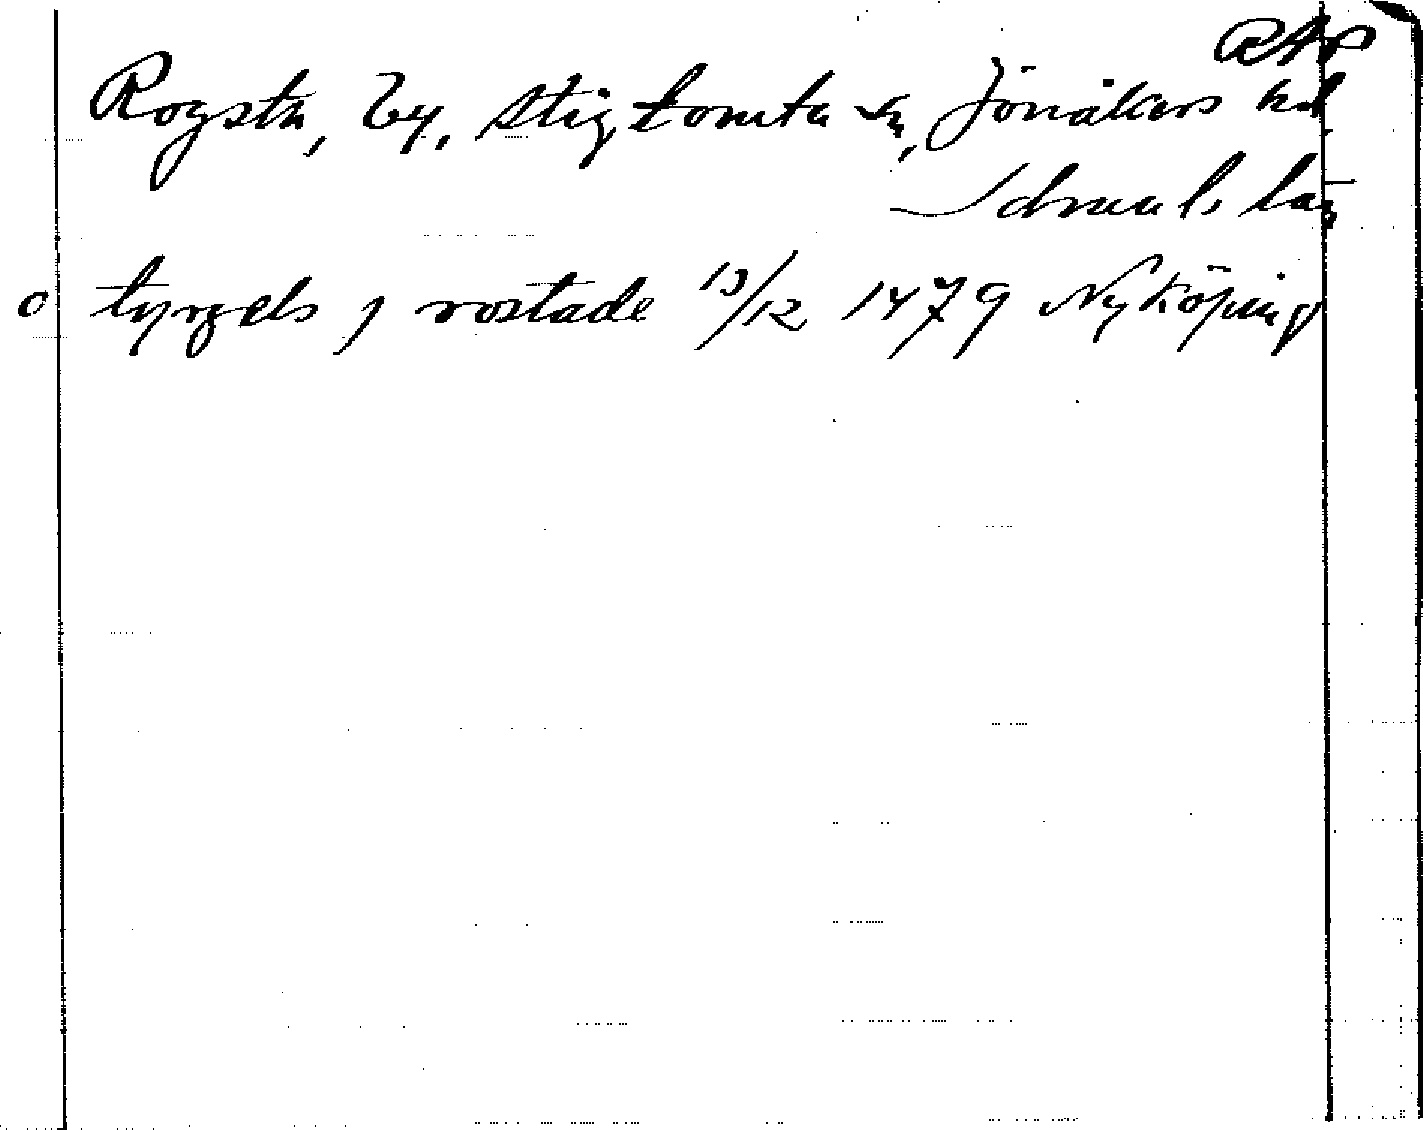 RAP
Rogsta, by, Stigtomta sn, Jönåkers hd
Södmanl. län
o tyrgels j rostade 13/12 1479 Nyköping